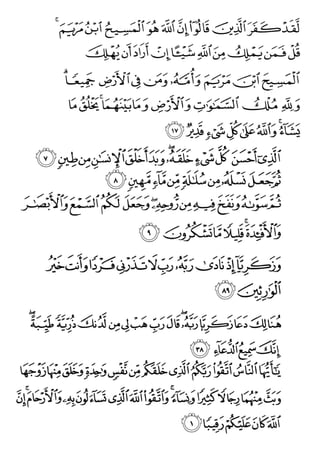 لَّقَدْ كَفَرَ ٱلَّذِينَ قَالُوٓا۟ إِنَّ ٱللَّهَ هُوَ ٱلْمَسِيحُ ٱبْنُ مَرْيَمَ ۚ
قُلْ فَمَن يَمْلِكُ مِنَ ٱللَّهِ شَيْـًٔا إِنْ أَرَادَ أَن يُهْلِكَ
ٱلْمَسِيحَ ٱبْنَ مَرْيَمَ وَأُمَّهُۥ وَمَن فِى ٱلْأَرْضِ جَمِيعًا ۗ
وَلِلَّهِ مُلْكُ ٱلسَّمَٰوَٰتِ وَٱلْأَرْضِ وَمَا بَيْنَهُمَا ۚ يَخْلُقُ مَا
يَشَآءُ ۚ وَٱللَّهُ عَلَىٰ كُلِّ شَىْءٍ قَدِيرٌ ١٧
ٱلَّذِىٓ أَحْسَنَ كُلَّ شَىْءٍ خَلَقَهُۥ ۖ وَبَدَأَ خَلْقَ ٱلْإِنسَٰنِ مِن طِينٍ ٧
ثُمَّ جَعَلَ نَسْلَهُۥ مِن سُلَٰلَةٍ مِّن مَّآءٍ مَّهِينٍ ٨
ثُمَّ سَوَّىٰهُ وَنَفَخَ فِيهِ مِن رُّوحِهِۦ ۖ وَجَعَلَ لَكُمُ ٱلسَّمْعَ وَٱلْأَبْصَٰرَ
وَٱلْأَفْـِٔدَةَ ۚ قَلِيلًا مَّا تَشْكُرُونَ ٩
وَزَكَرِيَّآ إِذْ نَادَىٰ رَبَّهُۥ رَبِّ لَا تَذَرْنِى فَرْدًا وَأَنتَ خَيْرُ
ٱلْوَٰرِثِينَ ٨٩
هُنَالِكَ دَعَا زَكَرِيَّا رَبَّهُۥ ۖ قَالَ رَبِّ هَبْ لِى مِن لَّدُنكَ ذُرِّيَّةً طَيِّبَةً ۖ
إِنَّكَ سَمِيعُ ٱلدُّعَآءِ ٣٨
يَٰٓأَيُّهَا ٱلنَّاسُ ٱتَّقُوا۟ رَبَّكُمُ ٱلَّذِى خَلَقَكُم مِّن نَّفْسٍ وَٰحِدَةٍ وَخَلَقَ مِنْهَا زَوْجَهَا
وَبَثَّ مِنْهُمَا رِجَالًا كَثِيرًا وَنِسَآءً ۚ وَٱتَّقُوا۟ ٱللَّهَ ٱلَّذِى تَسَآءَلُونَ بِهِۦ وَٱلْأَرْحَامَ ۚ إِنَّ
ٱللَّهَ كَانَ عَلَيْكُمْ رَقِيبًا ١